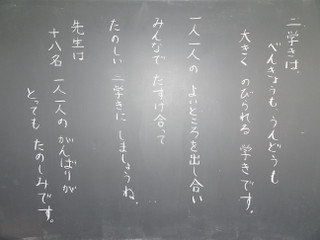 二学きは、
べんきょうも うんどうも
大きく のびられる 学きです。
一人一人の よいところを出し合い
みんなで たすけ合って
たのしい 二学きに しましょうね。
先生は
十八名 一人一人の がんばりが
とっても たのしみです。